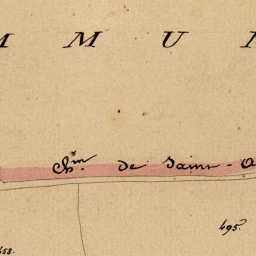 MMUN
Ch.in de Saint-O
495.
458.